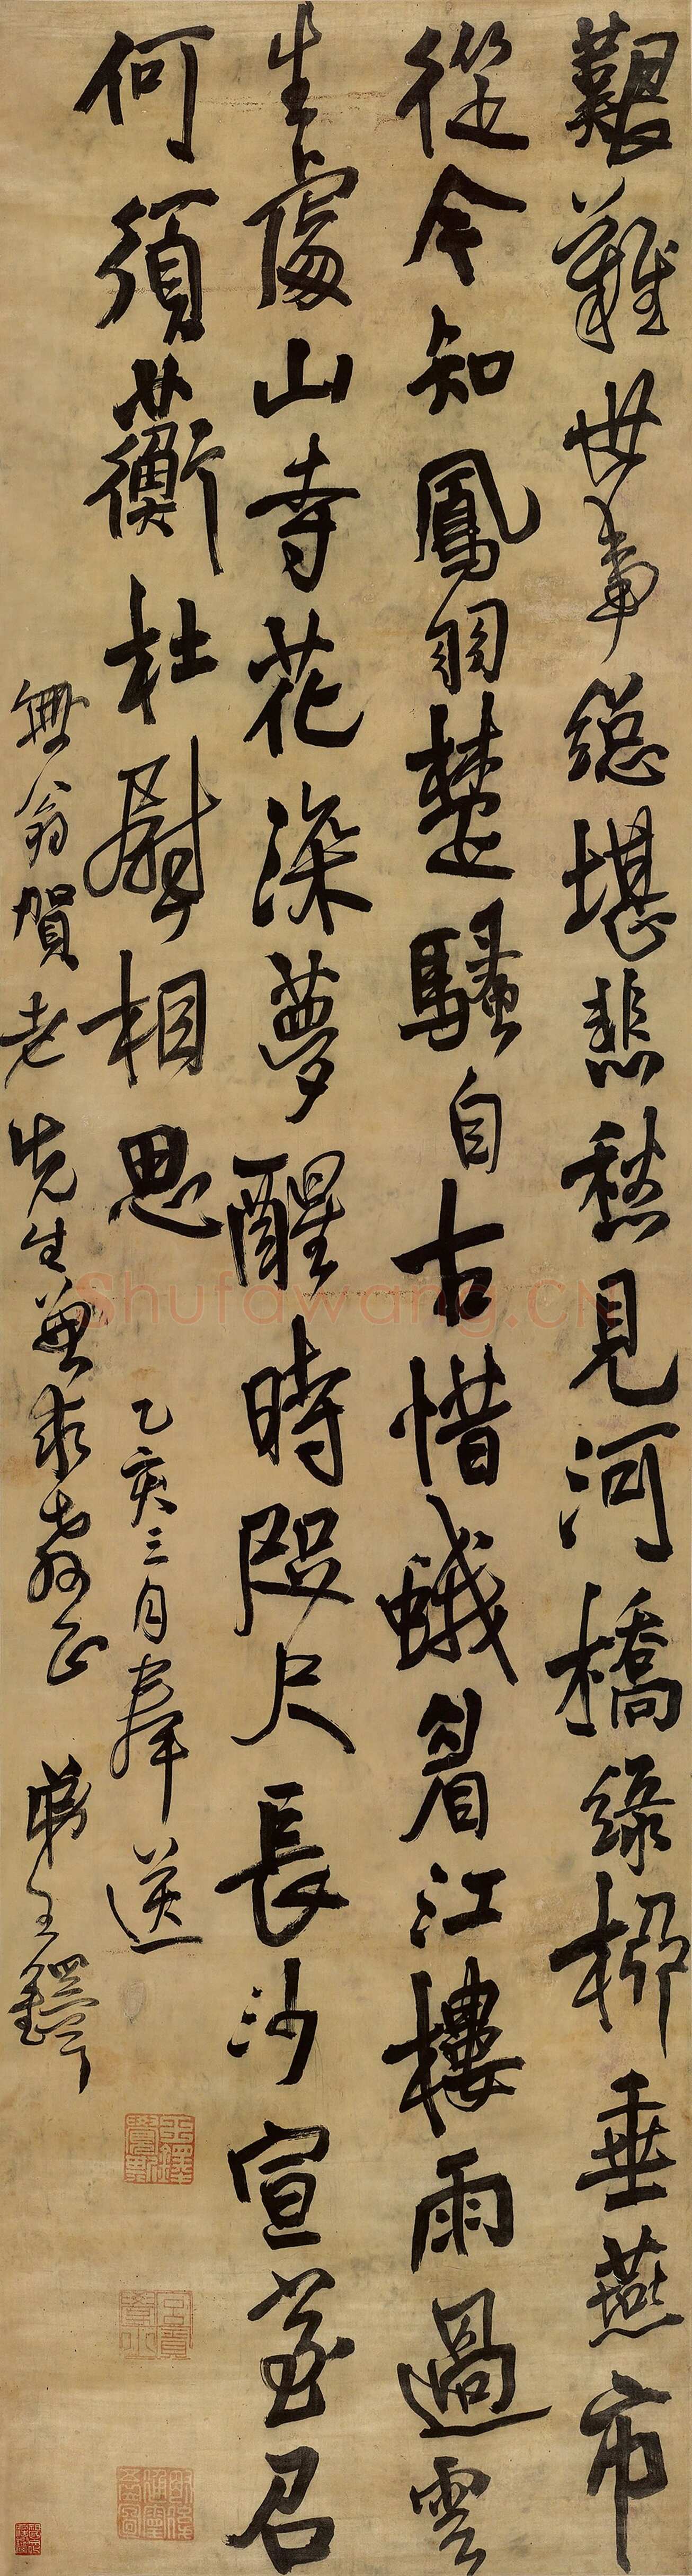 艱難世事總堪悲愁見河橋綠柳垂燕市
從今知鳳羽楚騷自古惜蛾眉江樓雨過雲
生處山寺花深夢醒時咫尺長沙宣室召
何須蘅杜慰相思
乙亥三月奉送
無翁賀老先生兼求教正 弟王鐸
Shufawang.CN